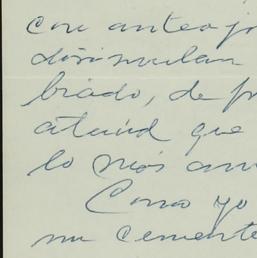 con anteoj
disimulan
biado, de p
ataúd que
lo más am
Como yo
mi cemente